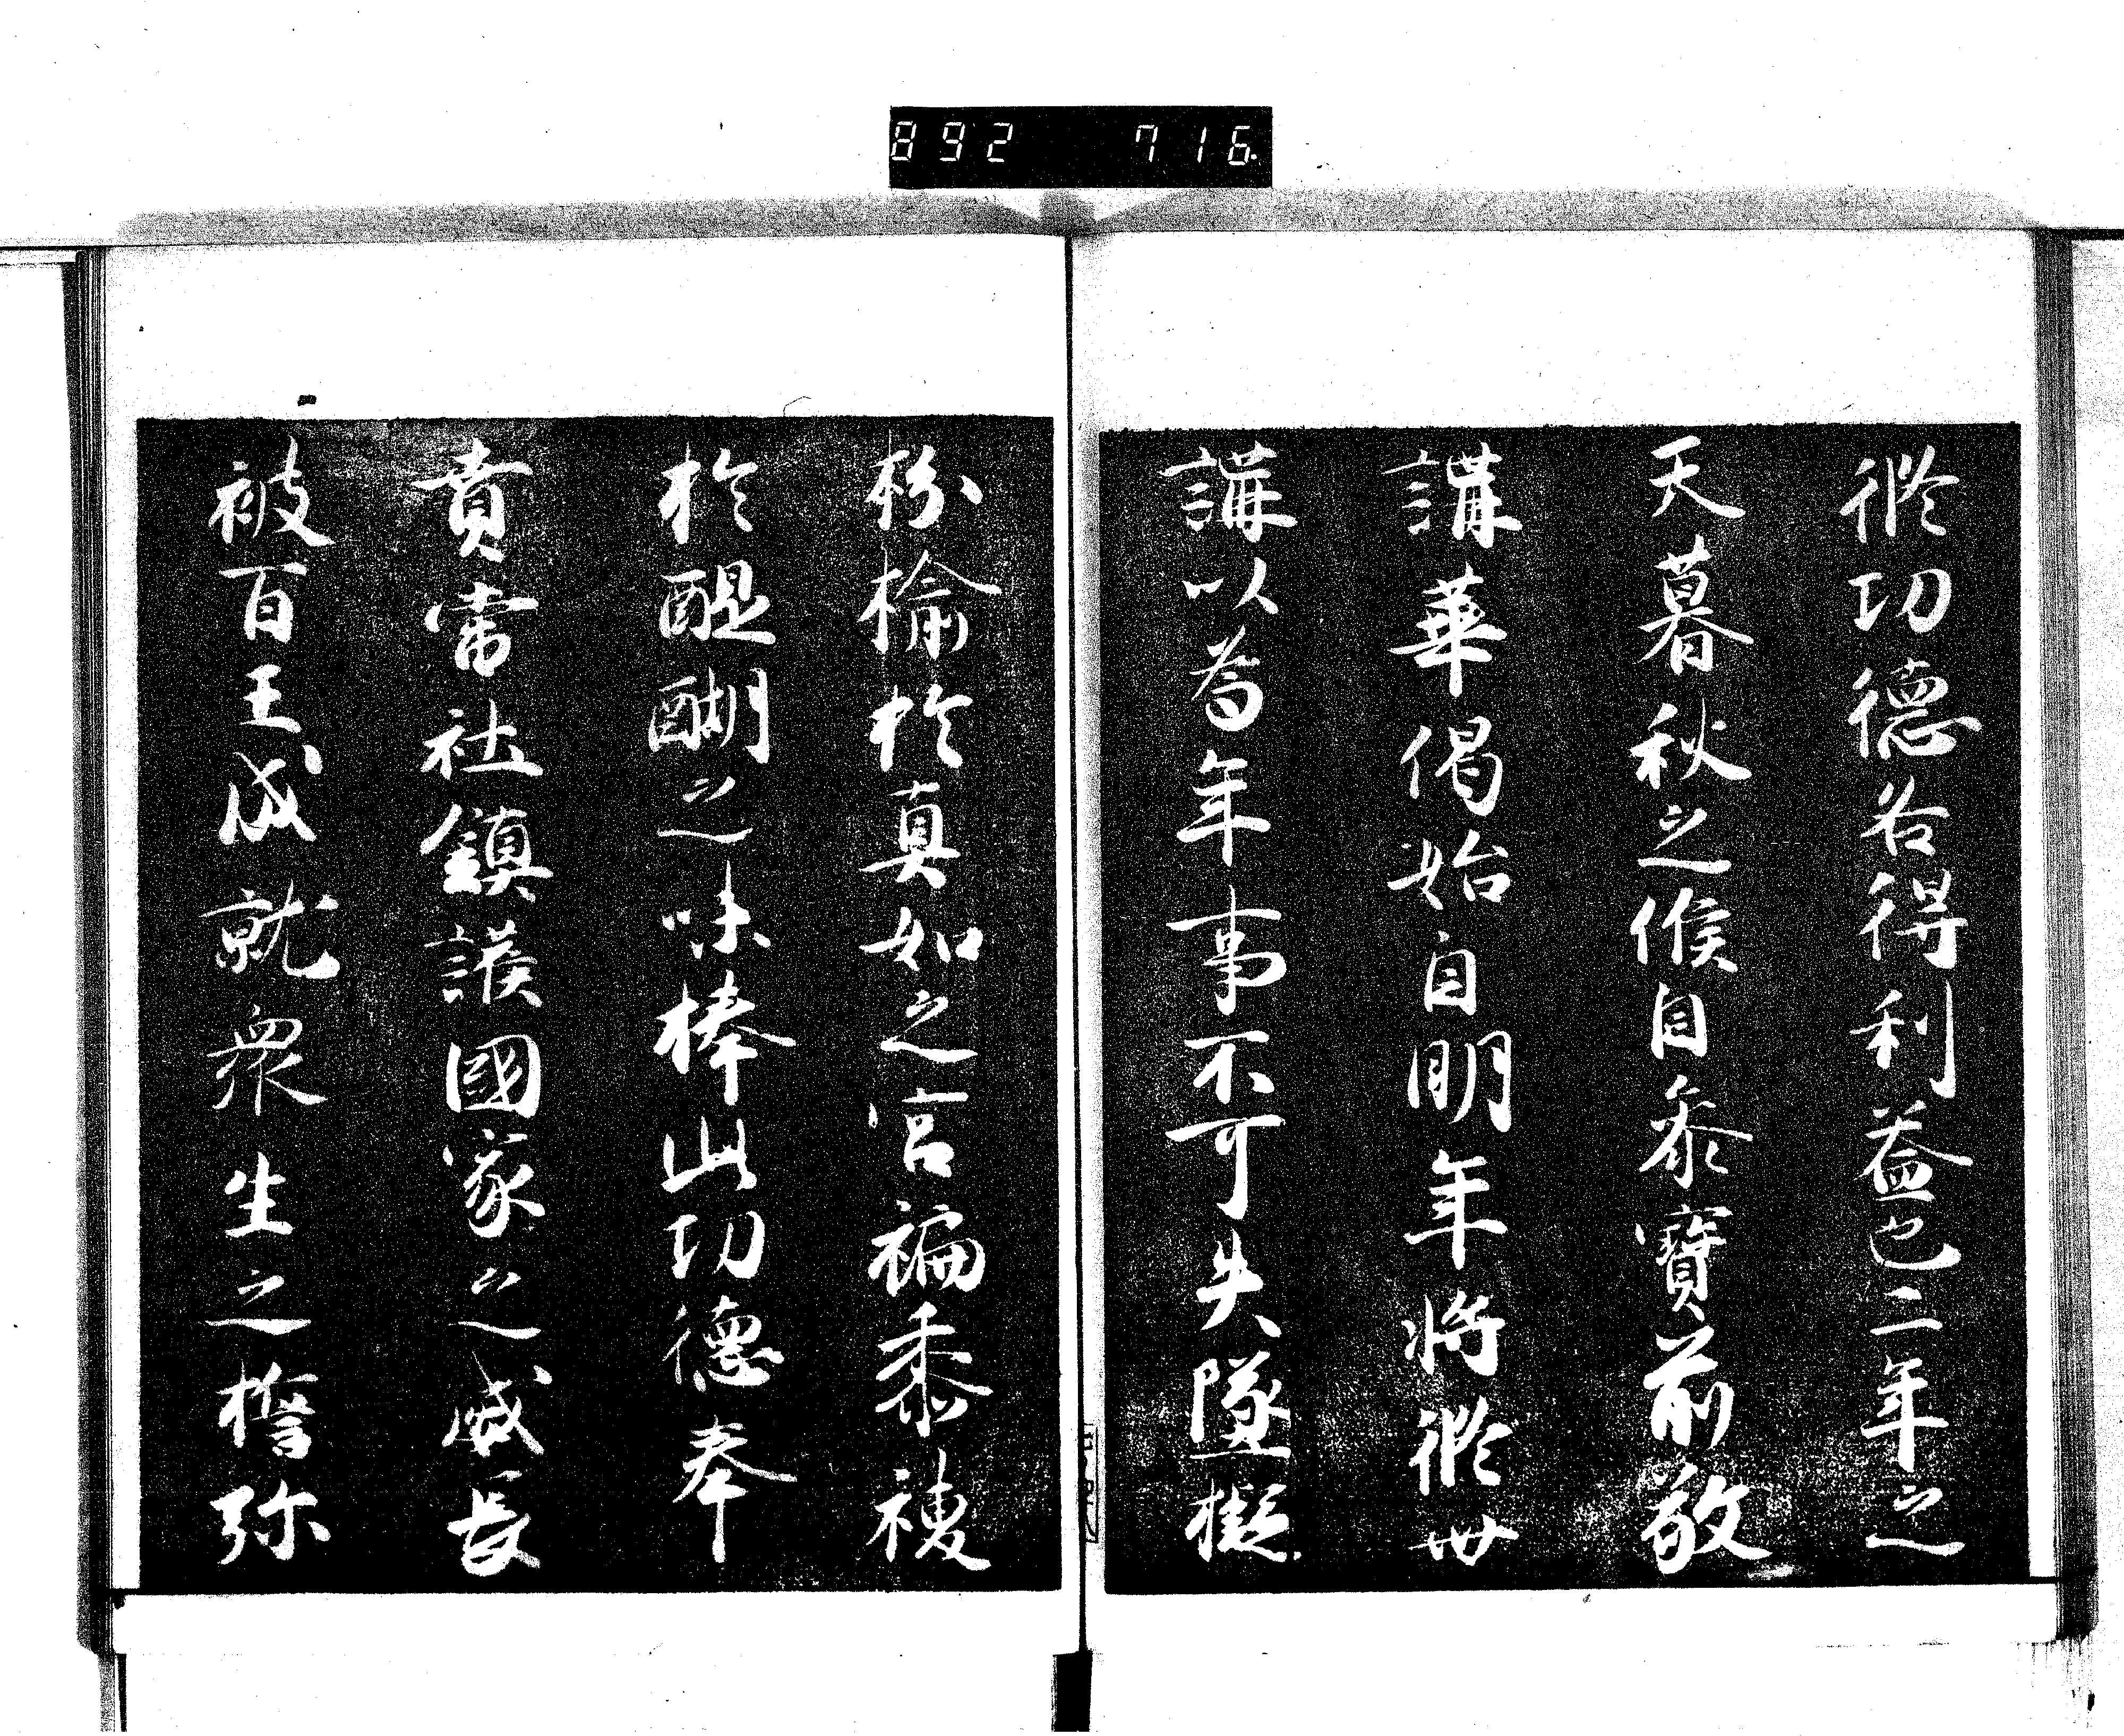 892 716
修功德各得利益也二年之
天暮秋之候自黍寶前敬
講華偈始自明年將修卅
講以為年事不可失墜擬
枌榆於真如之宮褊黍稷
於醍醐之味捧此功德奉
賁當社鎮護國家之威長
被百王成就衆生之擔弥